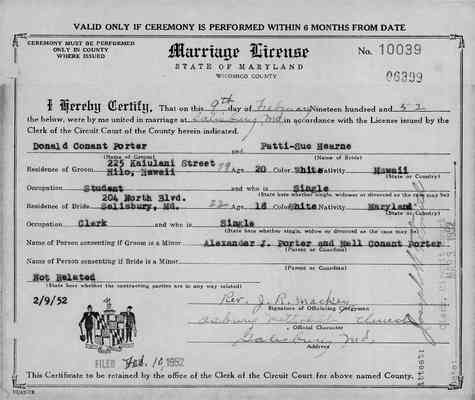 VALID ONLY IF CEREMONY IS PERFORMED WITHIN 6 MONTHS FROM DATE
CEREMONY MUST BE PERFORMED
ONLY IN COUNTY
WHERE ISSUED
Marriage License
STATE OF MARYLAND
WICOMICO COUNTY
No. 10039
06399
I Hereby Certify, That on this 9th day of February Nineteen hundred and 52
the below, were by me united in marriage at Salisbury, Md. in accordance with the License issued by the
Clerk of the Circuit Court of the County herein indicated.
Donald Conant Porter and Patti-Sue Hearne
(Name of Groom) (Name of Bride)
225 Kaiulani Street
Residence of Groom Hilo, Hawaii Age 20 Color White Nativity Hawaii
(State or Country)
Occupation Student and who is Single
(State here whether single, widow or divorced as the case may be)
204 North Blvd.
Residence of Bride Salisbury, Md. 22 Age 18 Color White Nativity Maryland
(State or Country)
Occupation Clerk and who is Single
(State here whether single, widow or divorced as the case may be)
Name of Person consenting if Groom is a Minor Alexander J. Porter and Nell Conant Porter
(Parent or Guardian)
Name of Person consenting if Bride is a Minor
(Parent or Guardian)
Not Related
(State here whether the contracting parties are in any way related)
2/9/52
Rev. J. R. Mackey
Signature of Officiating Clergyman
Asbury Methodist Church
Official Character
Salisbury, Md.
Address
FILED Feb. 10, 1952
Attest:
This Certificate to be retained by the office of the Clerk of the Circuit Court for above named County.